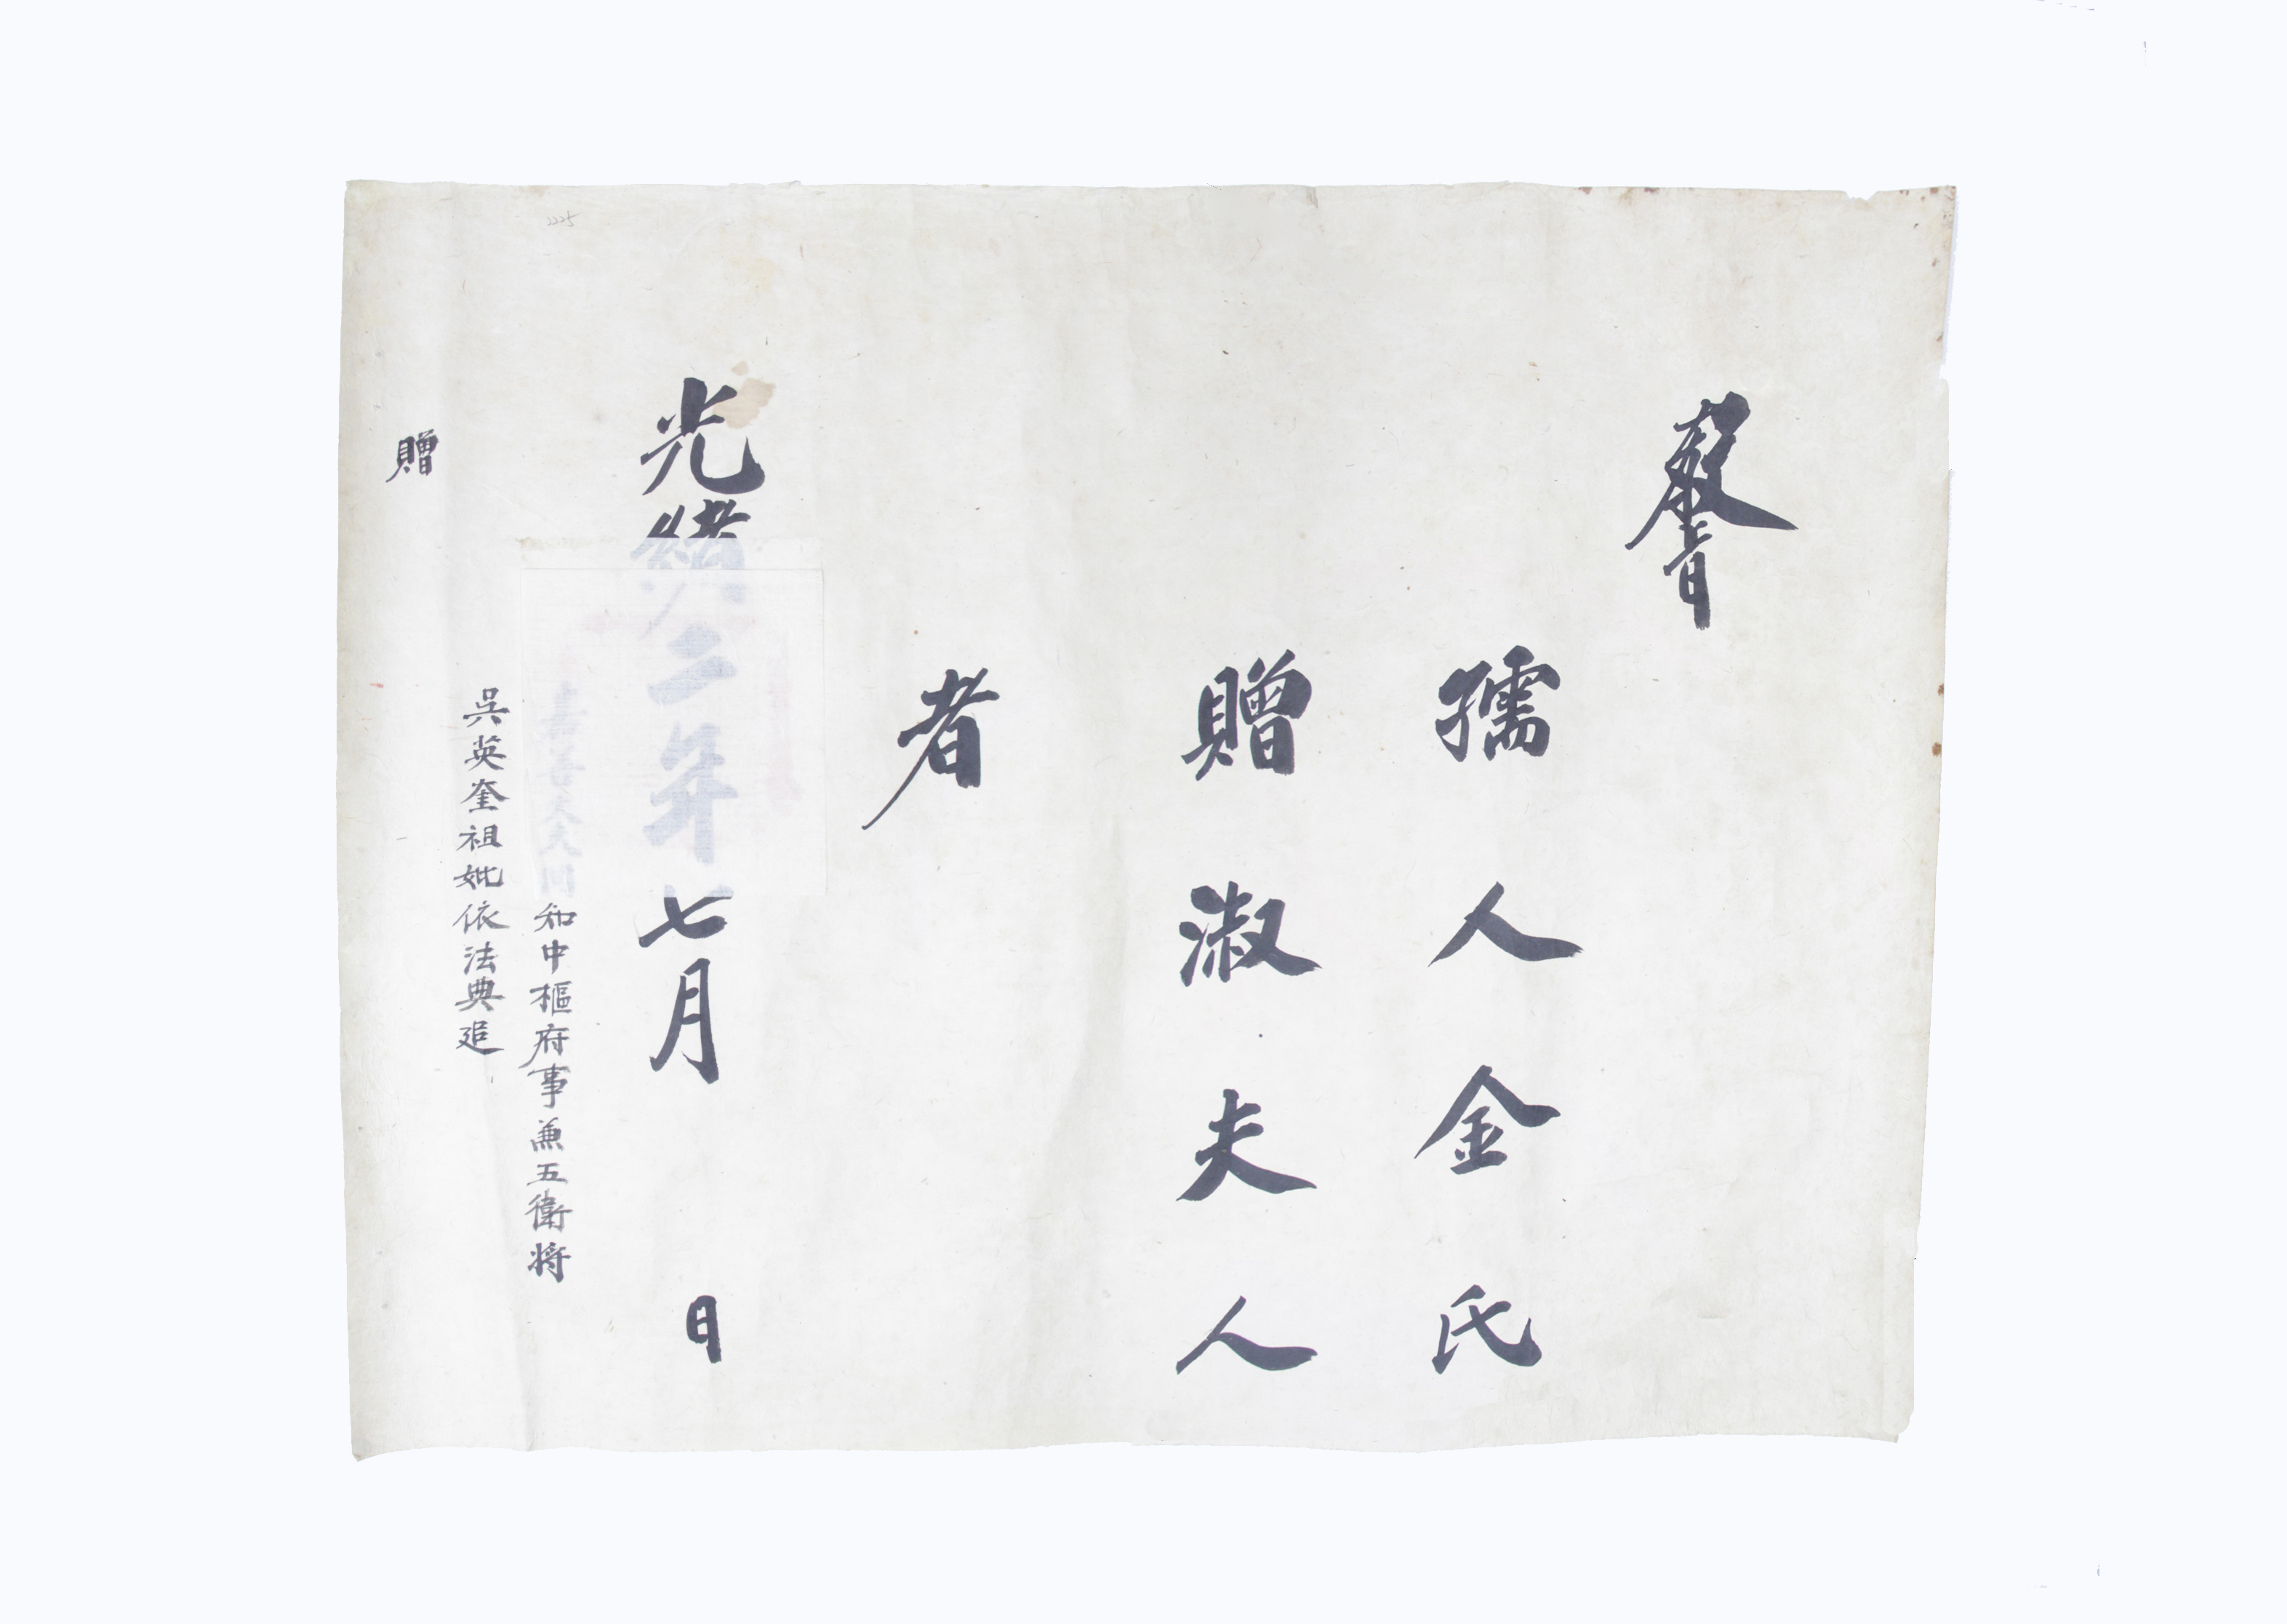 敎旨
孺人金氏
贈淑夫人
者
光緒二年七月 日
嘉善大夫同知中樞府事兼五衛将
吳英奎祖妣依法典追
贈
2225